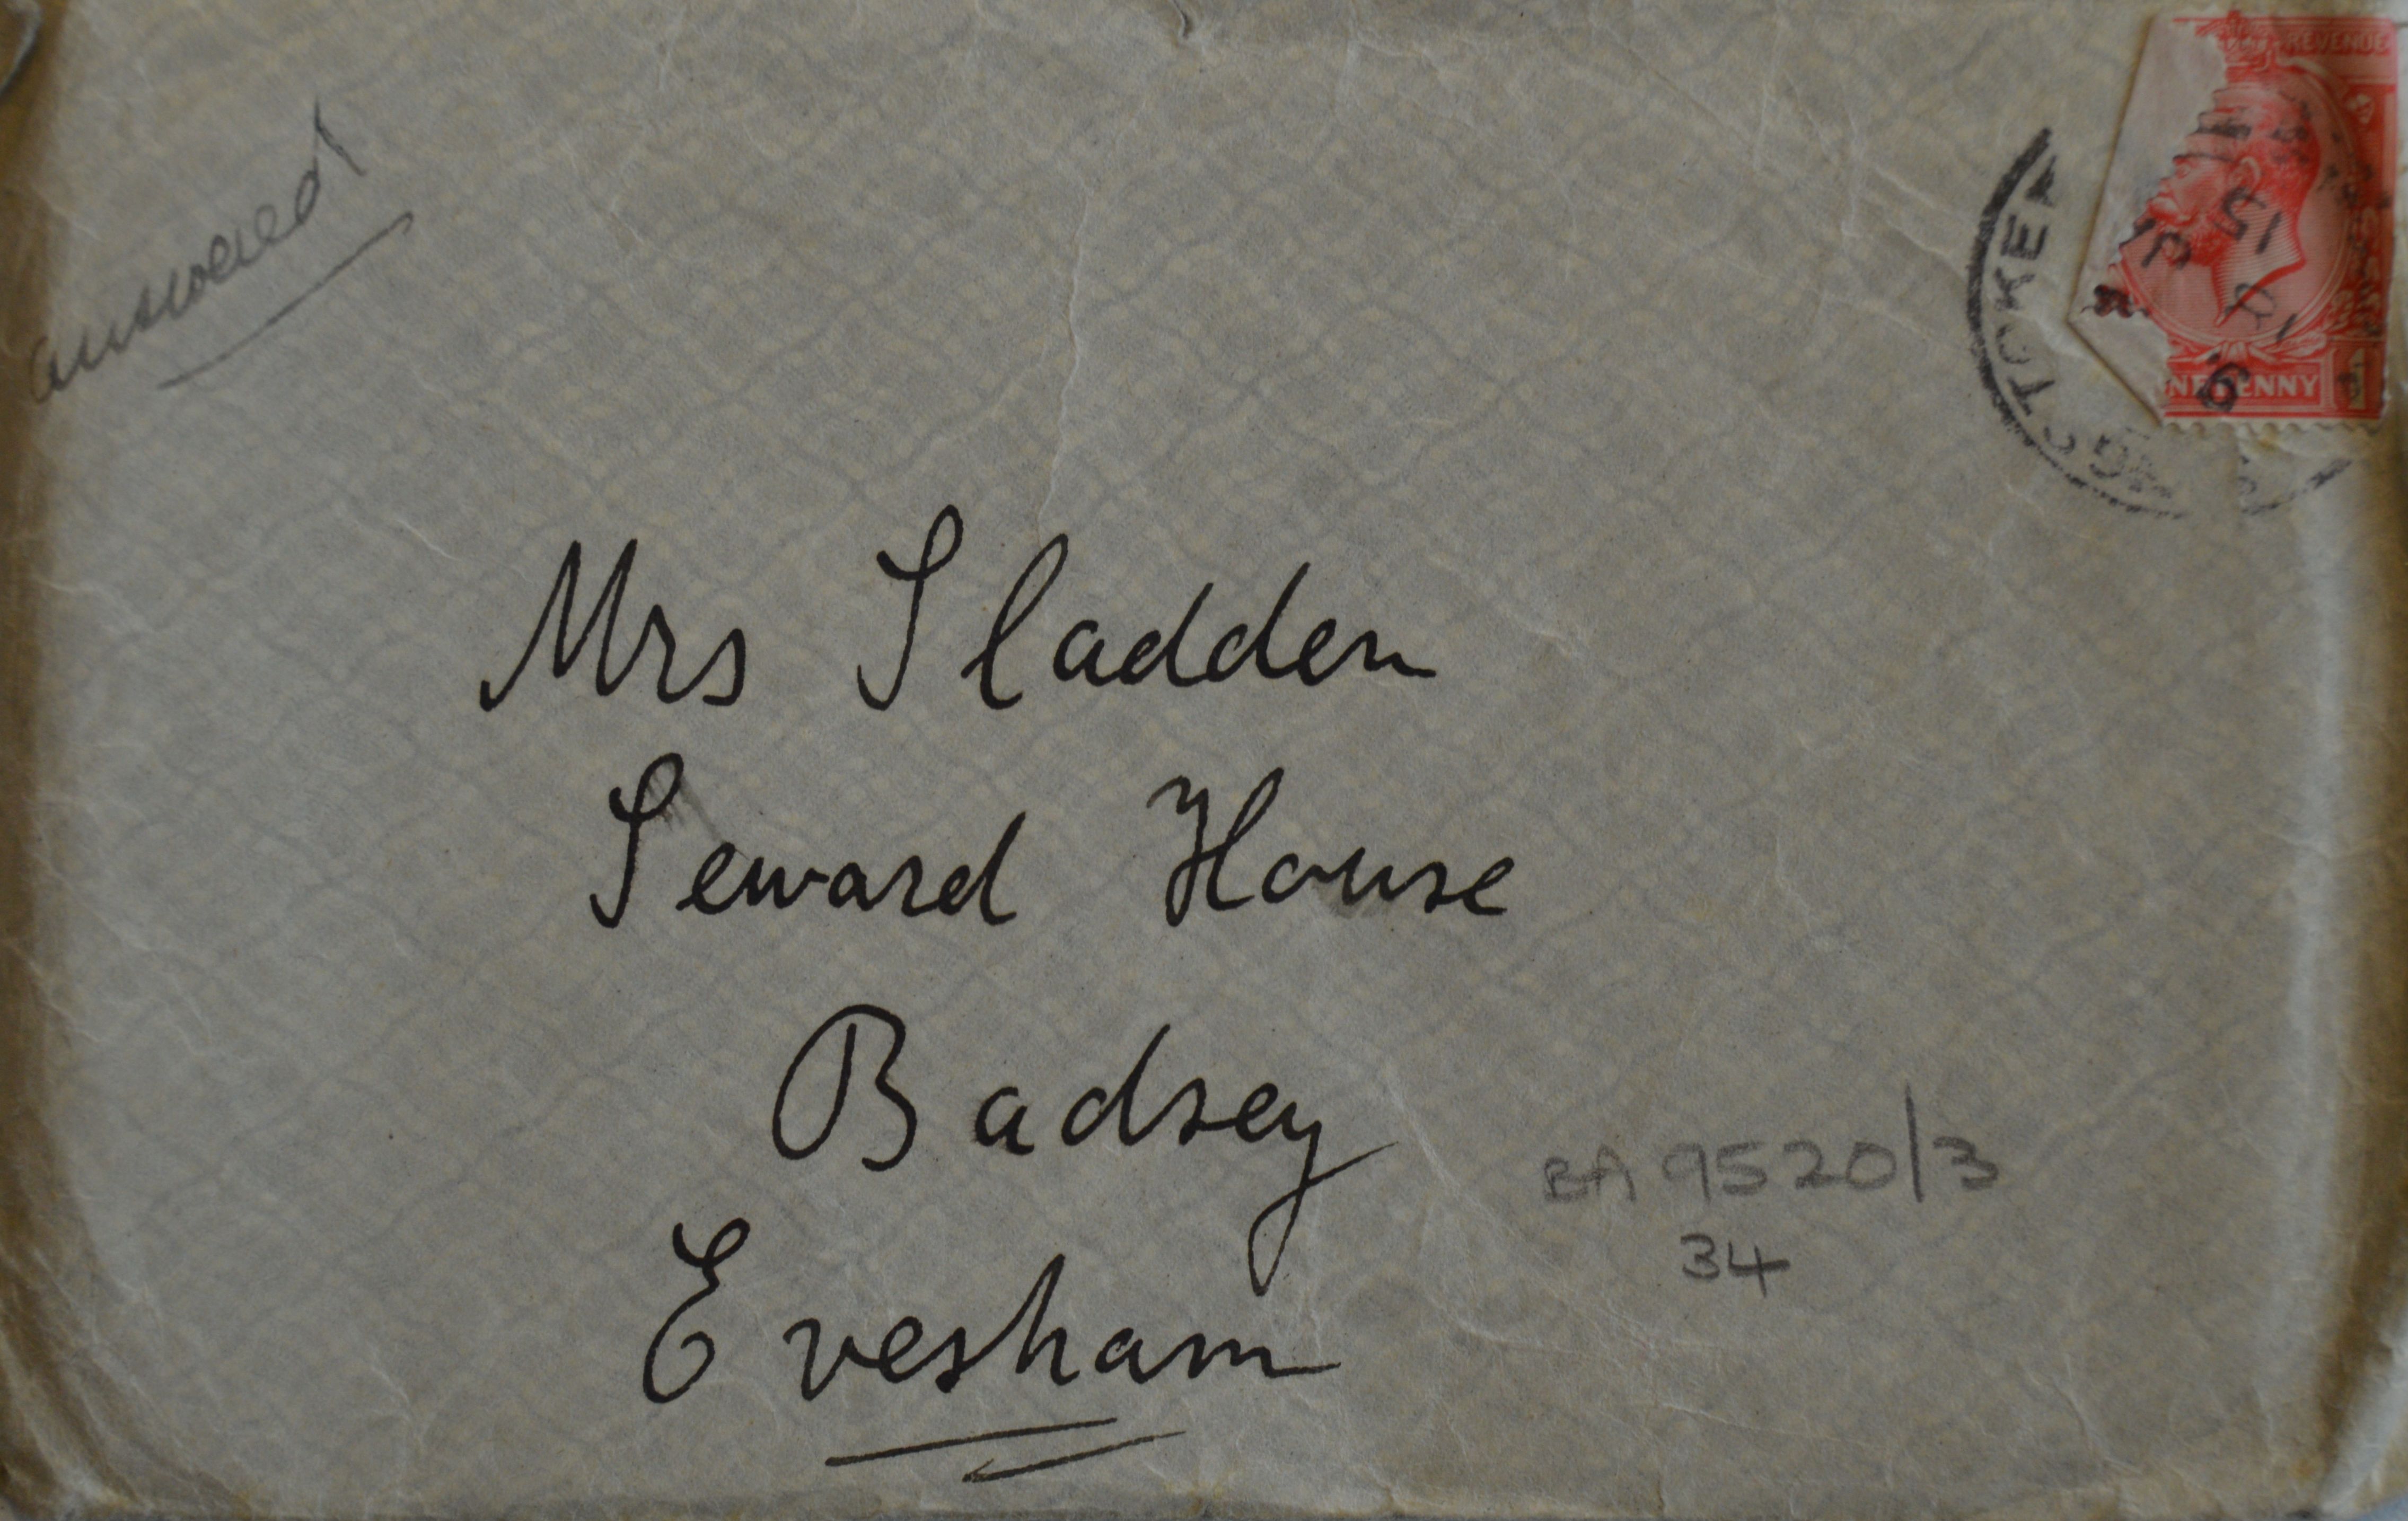 answered
REVENUE
NE PENNY 1
15
STOKEN
Mrs Sladden
Seward House
Badsey
Evesham
BA 9520/3
34